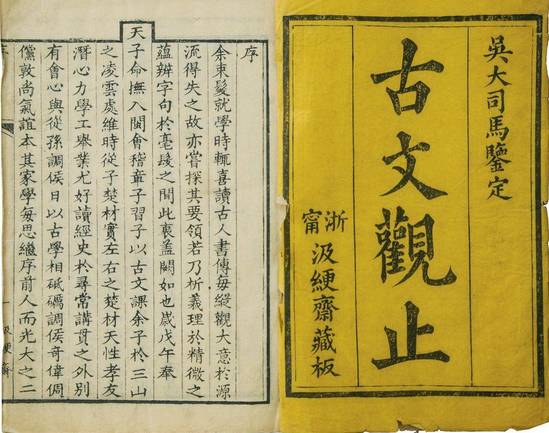 吳大司馬鑒定
古文觀止
浙甯
汲綆齋藏板
序
余束髮就學時輒喜讀古人書傳每縱觀大意於源
流得失之故亦嘗探其要領若乃析義理於精微之
蘊辨字句於毫髮之間此衷蓋闕如也歲戊午奉
天子命撫八閩會稽章子習子以古文課余子於三山
之凌雲處維時從子楚材實左右之楚材天性孝友
潛心力學工舉業尤好讀經史於尋常講貫之外別
有會心與從孫調侯日以古學相砥礪調侯奇偉倜
儻敦尚氣誼本其家學每思繼序前人而光大之二
一 汲綆齋